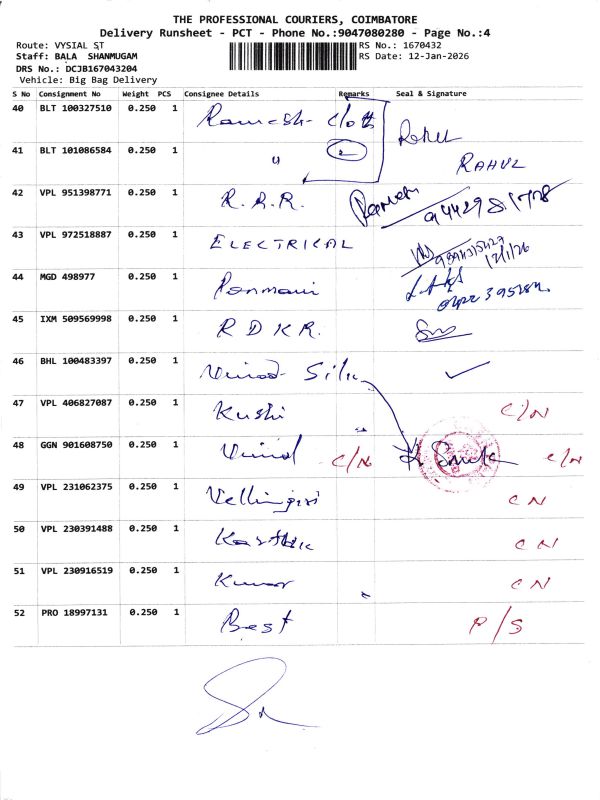 THE PROFESSIONAL COURIERS, COIMBATORE
Delivery Runsheet - PCT - Phone No.:9047080280 - Page No.:4
Route: VYSIAL ST RS No.: 1670432
Staff: BALA SHANMUGAM RS Date: 12-Jan-2026
DRS No.: DCJB167043204
Vehicle: Big Bag Delivery
S No Consignment No Weight PCS Consignee Details Remarks Seal & Signature
40 BLT 100327510 0.250 1 Ramesh Cloth
41 BLT 101086584 0.250 1 " 2 RAHUL
42 VPL 951398771 0.250 1 R.R.R.
43 VPL 972518887 0.250 1 ELECTRICAL 12/1/26
44 MGD 498977 0.250 1 Ponmani
45 IXM 509569998 0.250 1 R D K R.
46 BHL 100483397 0.250 1 Vinod Silk ✓
47 VPL 406827087 0.250 1 Kushi C/N
48 GGN 901608750 0.250 1 Vinod C/N C/N
49 VPL 231062375 0.250 1 Vellingiri C N
50 VPL 230391488 0.250 1 Karthik C N
51 VPL 230916519 0.250 1 Kumar C N
52 PRO 18997131 0.250 1 Best P/S